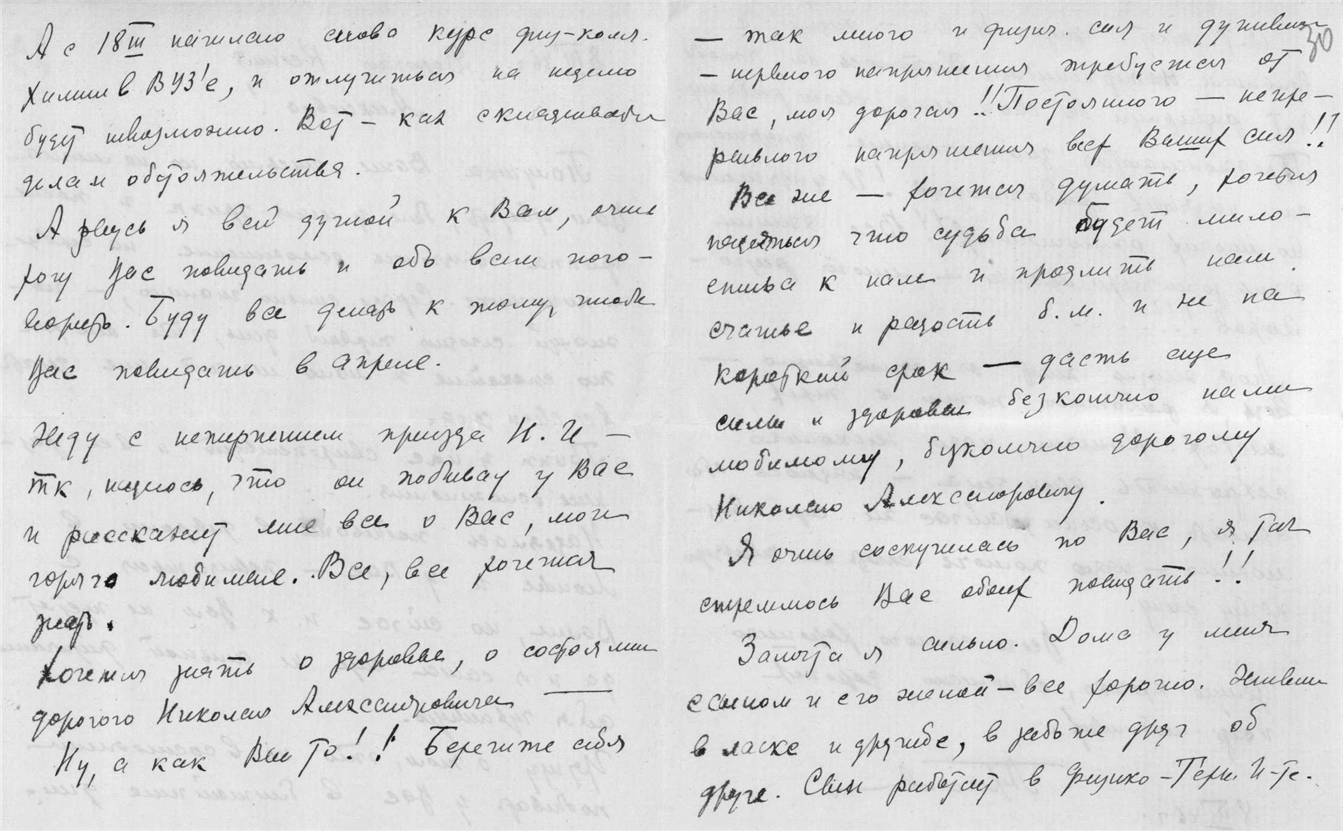 А с 18 III начинаю снова курс физ-колл.
химии в ВУЗ'е, и отлучиться на неделю
будет невозможно. Вот – как складывают
делам обстоятельства.
А рвусь я всей душой к Вам, очень
хочу Вас повидать и обо всем пого-
ворить. Буду все делать к тому, чтобы
Вас повидать в апреле.
Жду с нетерпением приезда Н. И –
тк, надеюсь, что он побывал у Вас
и расскажет мне все о Вас, мои
горячо любимые. Все, все хочется
знать.
Хочется знать о здоровье, о состоянии
дорогого Николая Александровича —
Ну, а как Вы то!! Берегите себя
30
– так много и физич. сил и душевн
– нервного напряжения требуется от
Вас, моя дорогая!! Постоянного – непре-
рывного напряжения всех Ваших сил!!
Все же – хочется думать, хочется
надеяться что судьба будет мило-
стива к нам и продлить нам
счастье и радость б.м. и не на
короткий срок – дасть еще
силы и здоровья безконечно нами
любимому, безконечно дорогому
Николаю Александровичу.
Я очень соскучилась по Вас, я так
стремлюсь Вас обоих повидать!!
Занята я сильно. Дома у меня
с сыном и его женой – все хорошо. Живем
в ласке и дружбе, в заботе друг об
друге. Сын работает в Физико-Техн. И-те.